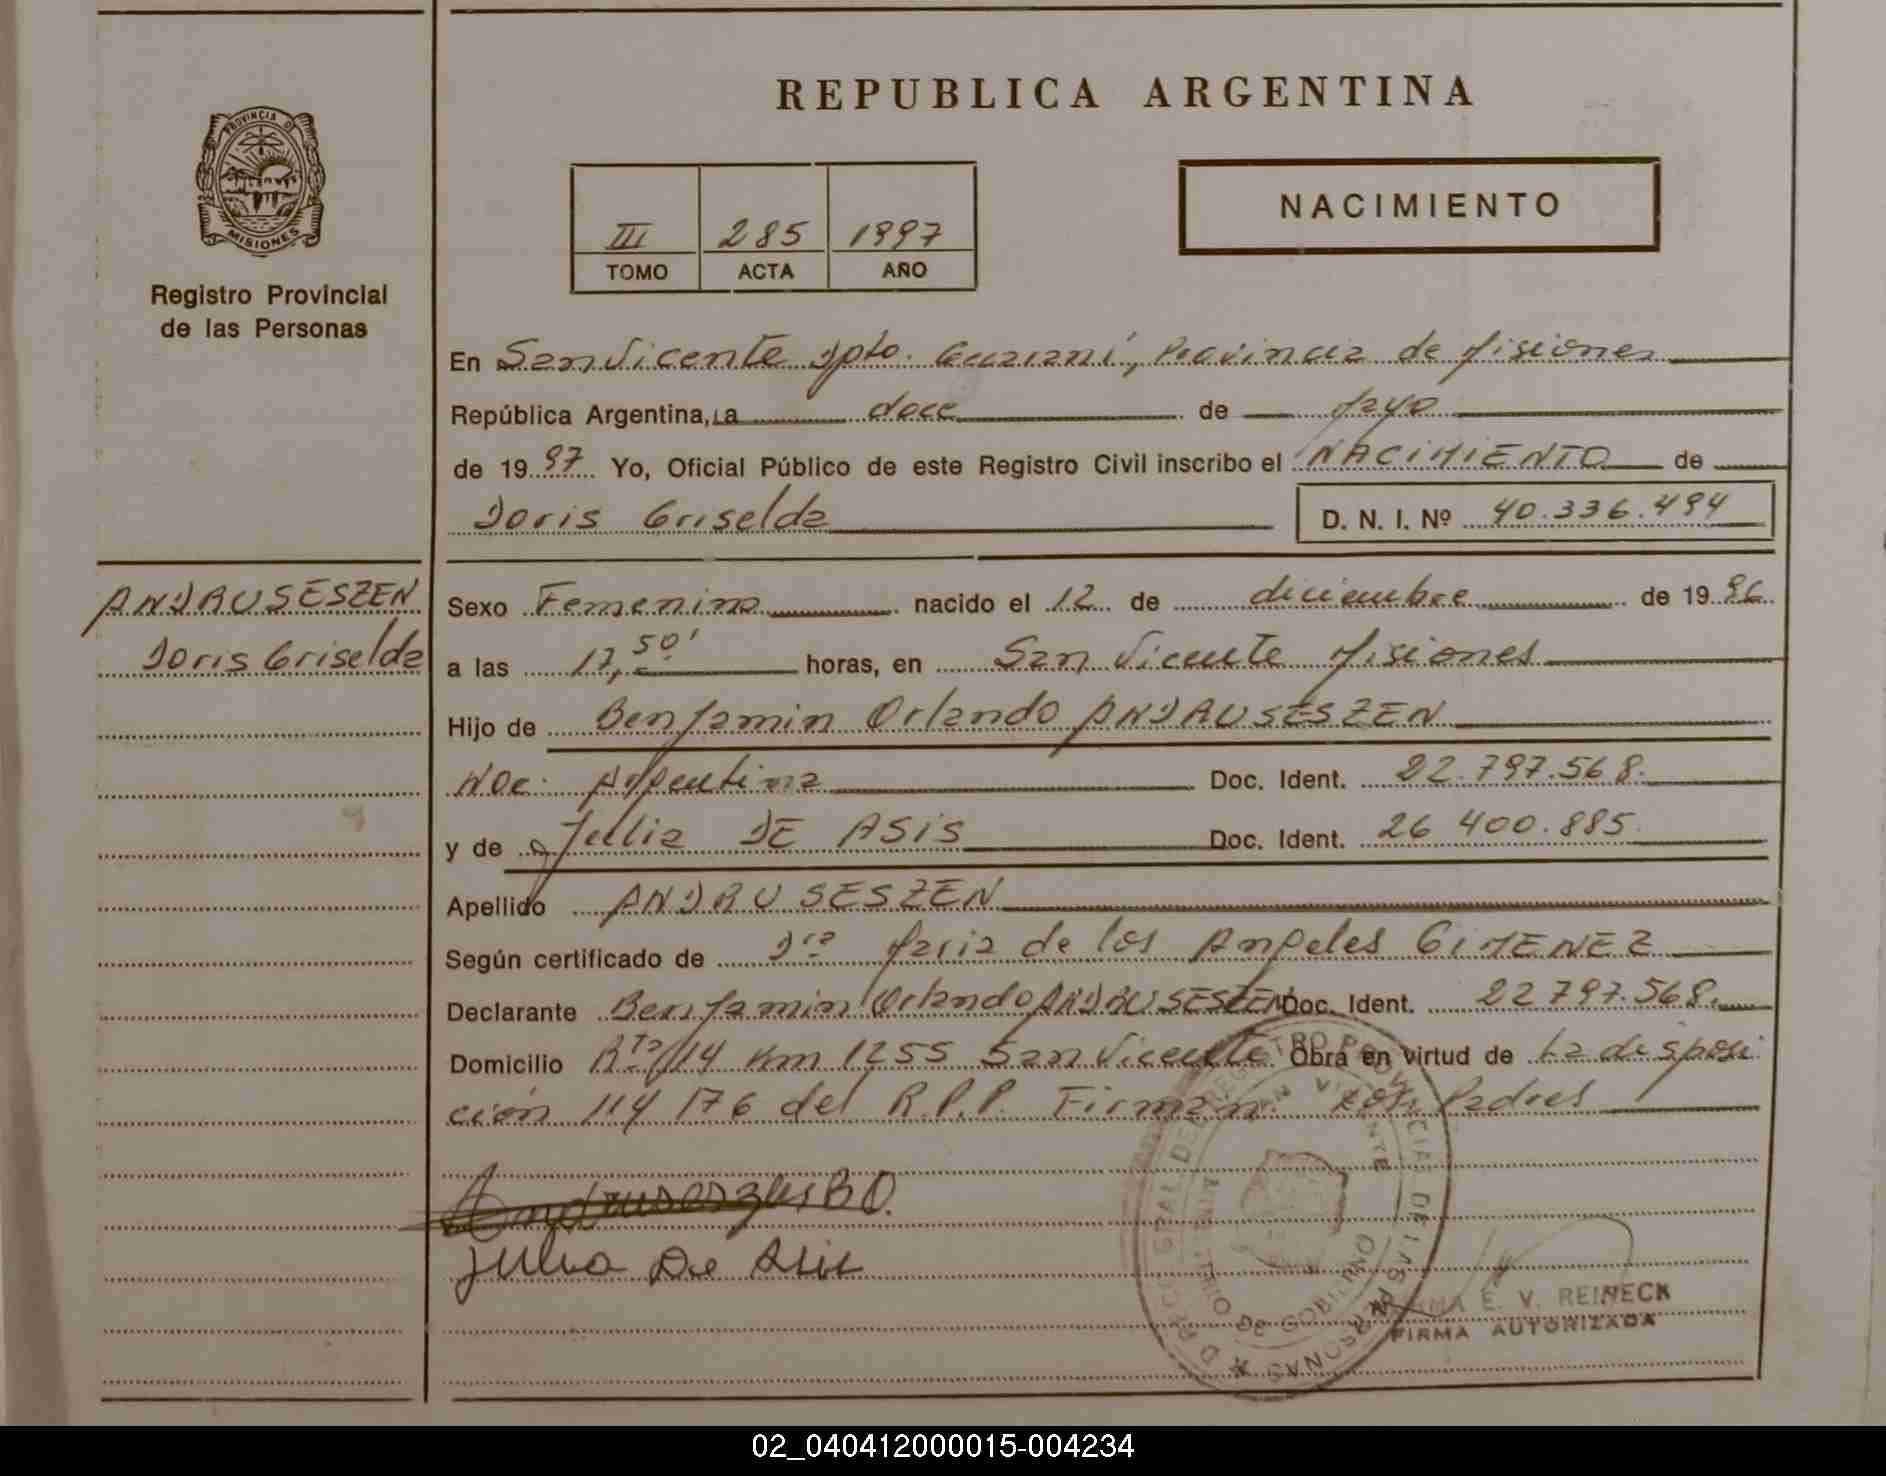 REPUBLICA ARGENTINA
PROVINCIA DE
MISIONES
Registro Provincial
de las Personas
III 285 1997
TOMO ACTA AÑO
NACIMIENTO
En San Vicente Dpto. Guaraní, Provincia de Misiones
República Argentina, a doce de Mayo
de 1997 Yo, Oficial Público de este Registro Civil inscribo el NACIMIENTO de
Doris Griselda D. N. I. Nº 40.336.494
ANDRUSESZEN
Doris Griselda
Sexo Femenino nacido el 12 de diciembre de 1996
a las 17,50' horas, en San Vicente Misiones
Hijo de Benjamin Orlando ANDRUSESZEN
Nac. Argentina Doc. Ident. 22.797.568.
y de Julia DE ASIS Doc. Ident. 26 400.885.
Apellido ANDRUSESZEN
Según certificado de Dra Maria de los Angeles GIMENEZ
Declarante Benjamin Orlando ANDRUSESZEN Doc. Ident. 22 797.568.
Domicilio Rta 14 Km 1255 San Vicente Obra en virtud de La disposi
ción 114/76 del R.P.P. Firman los Padres
Andruseszen B O.
Julia De Asis
E. V. REINECK
FIRMA AUTORIZADA
02_040412000015-004234